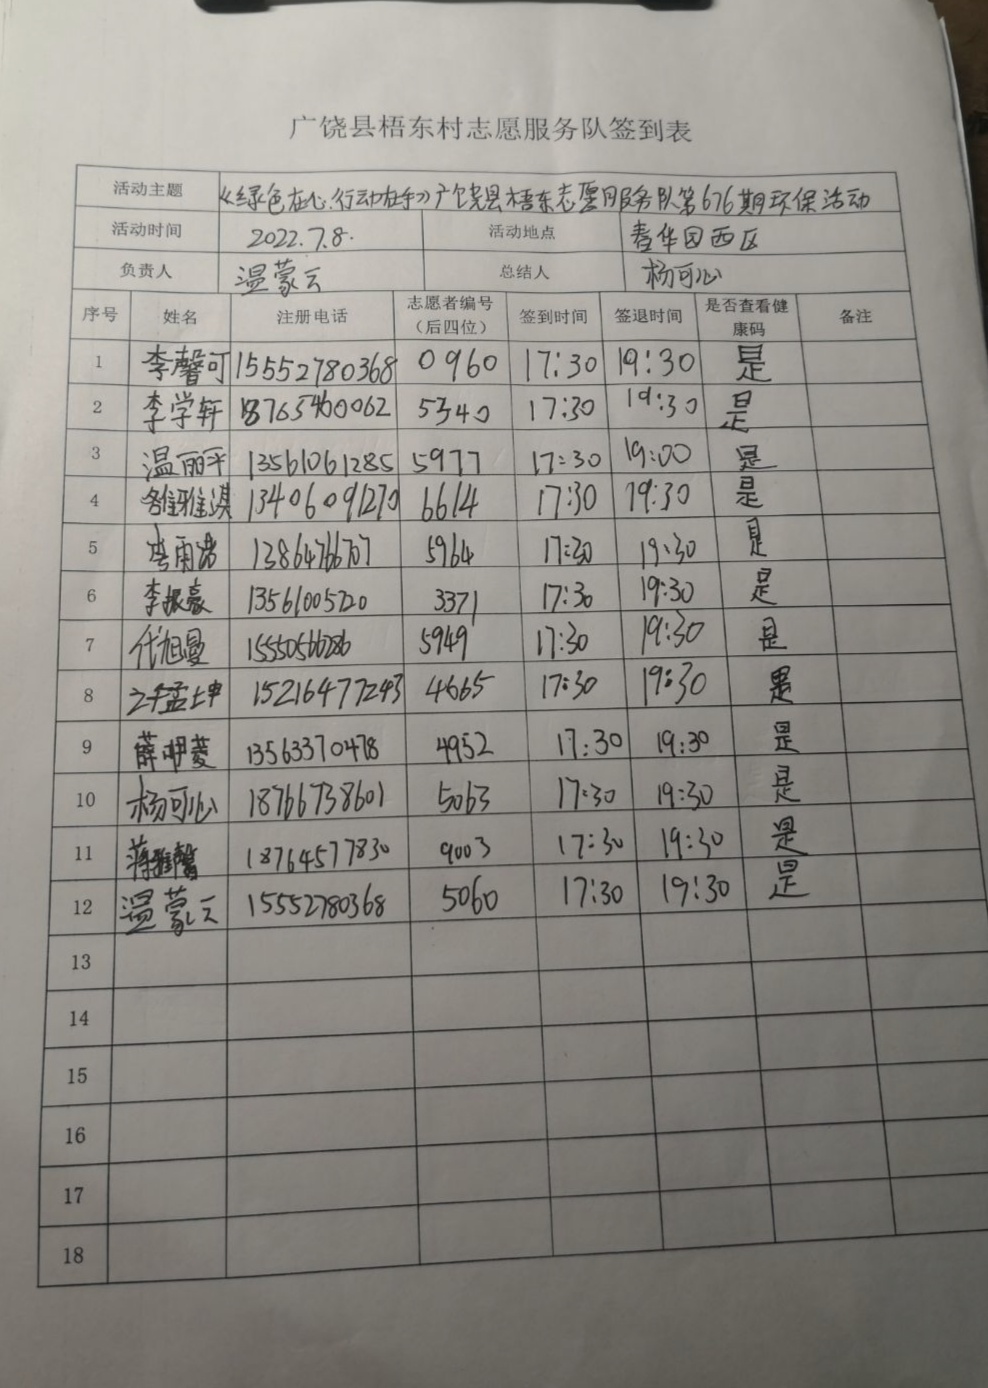 广饶县梧东村志愿服务队签到表
活动主题 《绿色在心、行动在手》广饶县梧东志愿服务队第676期环保活动
活动时间 2022.7.8. 活动地点 春华园西区
负责人 温蒙云 总结人 杨可心
序号 姓名 注册电话 志愿者编号（后四位） 签到时间 签退时间 是否查看健康码 备注
1 李馨可 15552780368 0960 17:30 19:30 是
2 李学轩 18765460062 5340 17:30 19:30 是
3 温丽平 13561061285 5977 17:30 19:00 是
4 13406091270 6614 17:30 19:30 是
5 李雨诺 13864766707 5964 17:30 19:30 是
6 李振豪 13561005720 3371 17:30 19:30 是
7 代旭曼 5949 17:30 19:30 是
8 15216477243 4665 17:30 19:30 是
9 薛明菱 13563370478 4952 17:30 19:30 是
10 杨可心 18766738601 5063 17:30 19:30 是
11 蒋雅馨 18764577830 9003 17:30 19:30 是
12 温蒙云 15552780368 5060 17:30 19:30 是
13
14
15
16
17
18